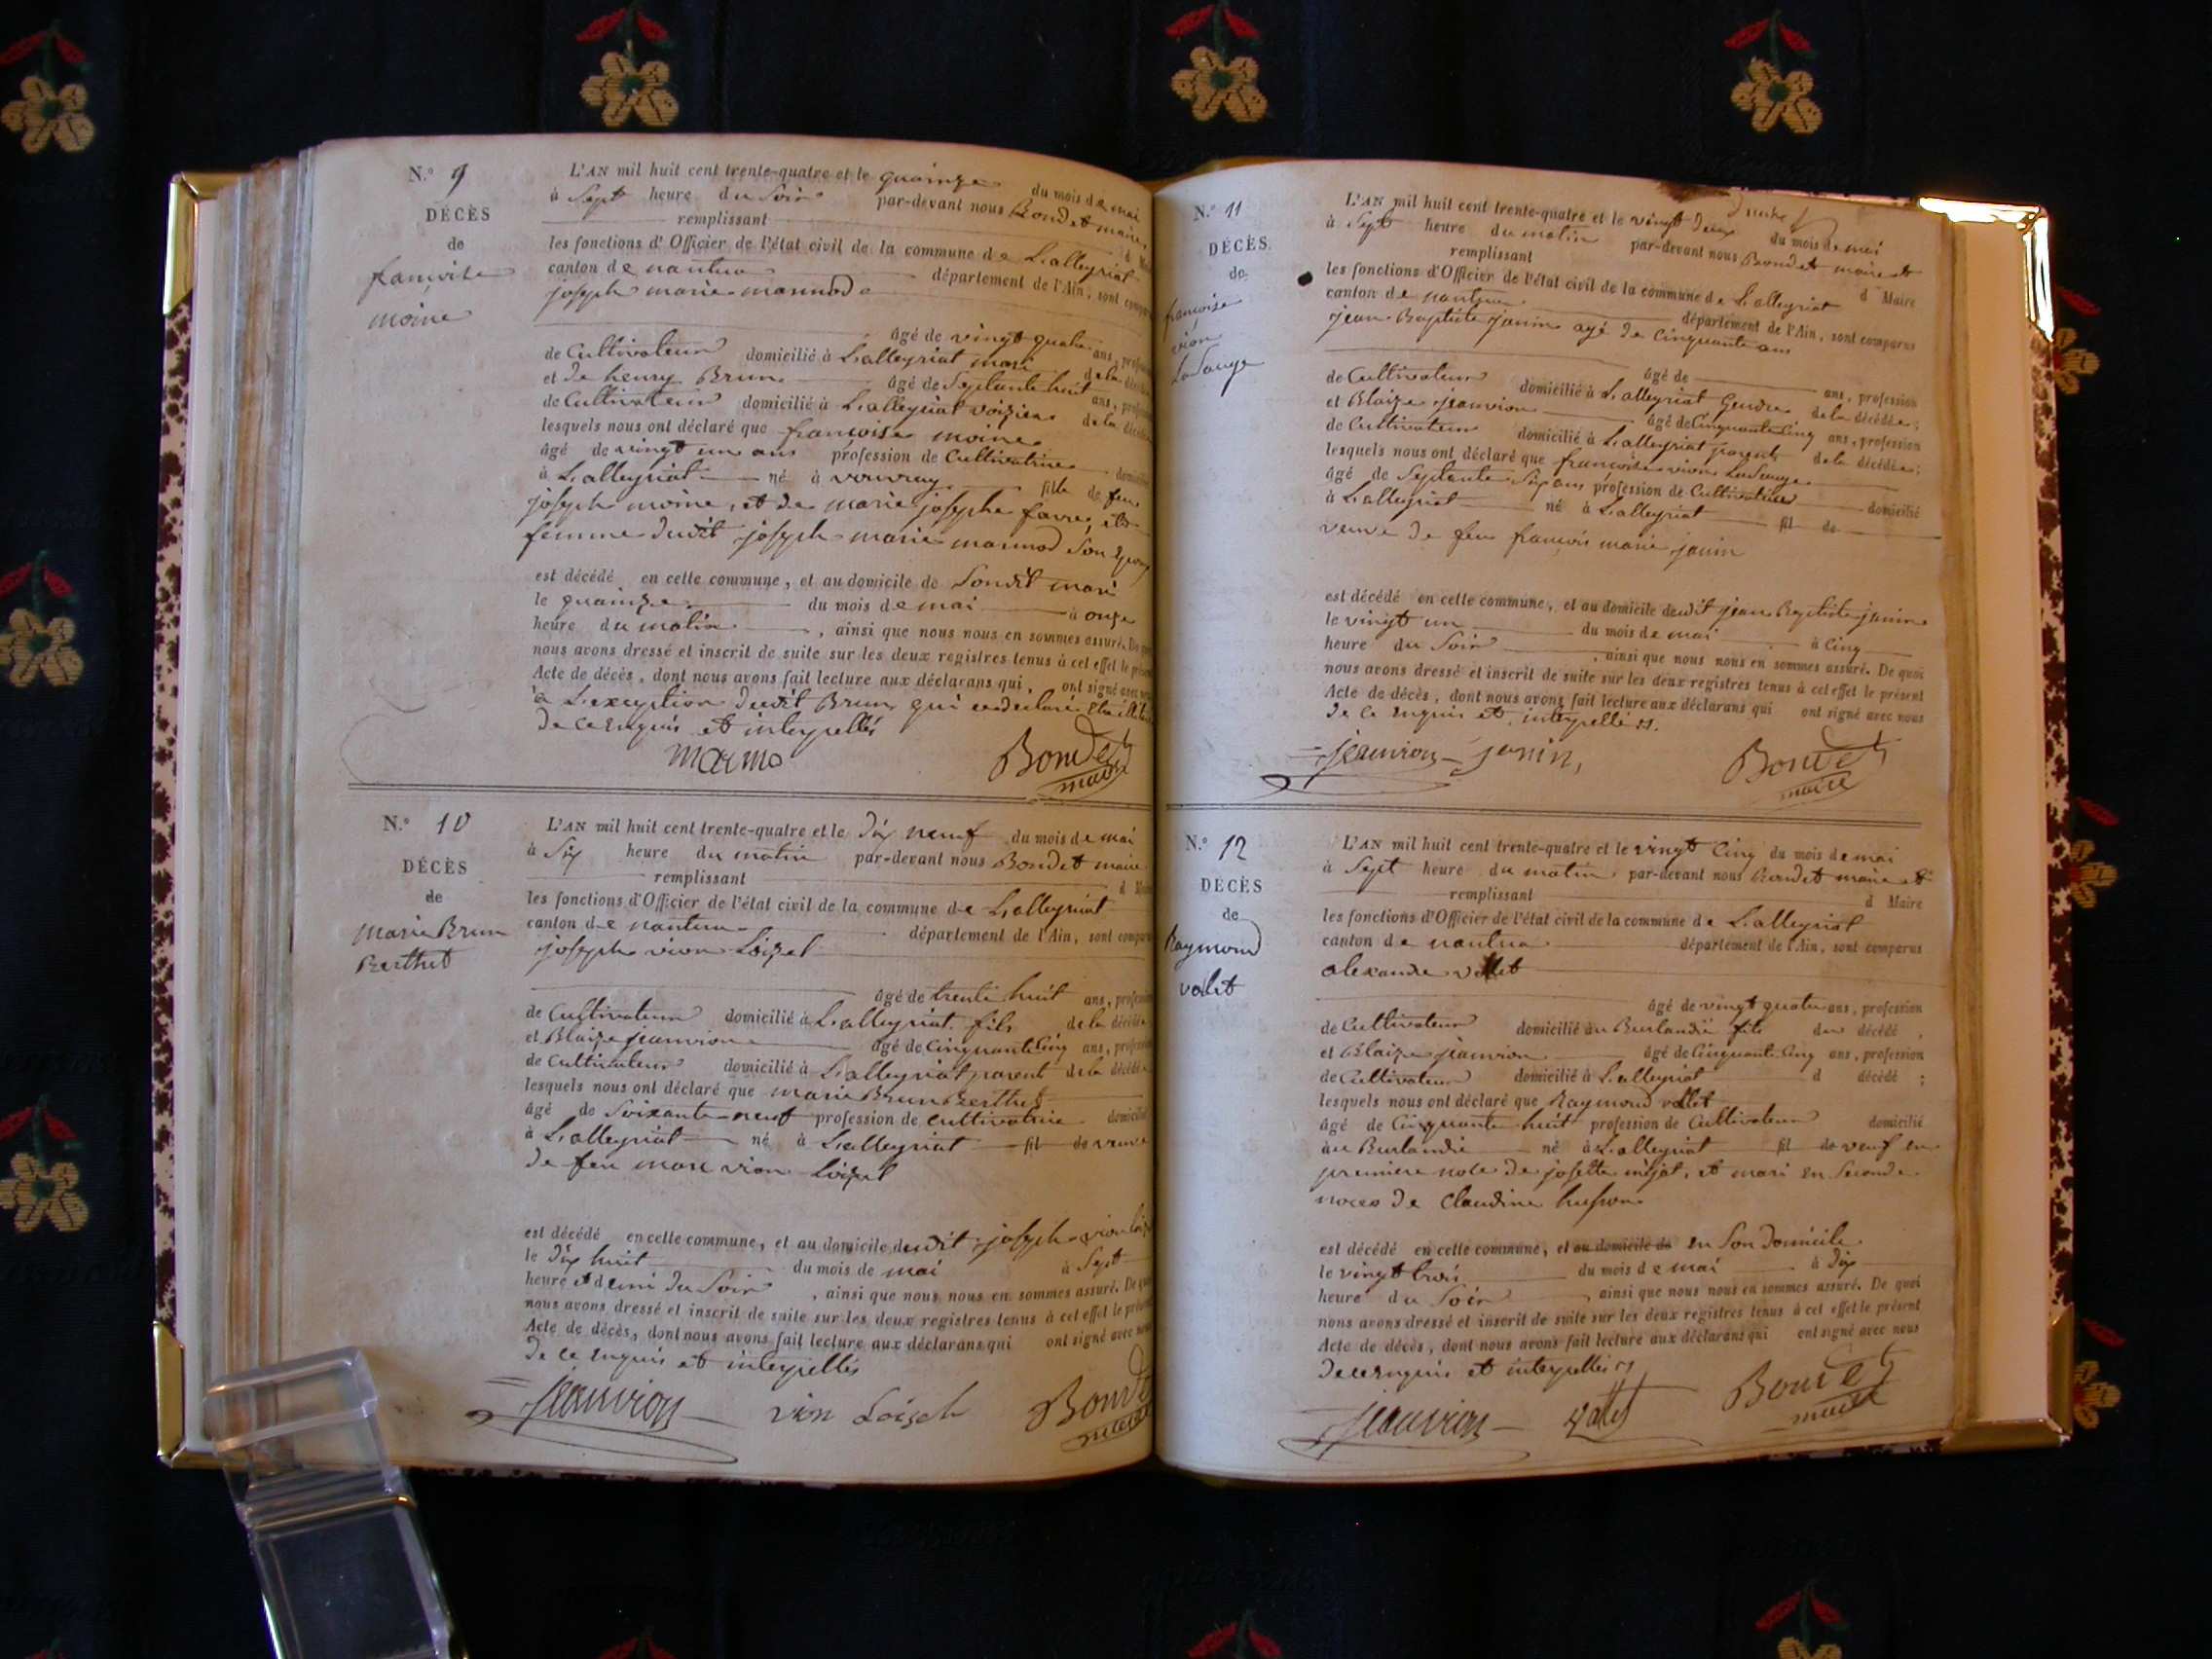 N.° 9
DÉCÈS
de
françoise
moine
L'AN mil huit cent trente-quatre et le quainze du mois de mai
à Sept heure du Soir par-devant nous Bondet maire
remplissant
les fonctions d'Officier de l'état civil de la commune de Lalleyriat
canton de nantua département de l'Ain, sont
joseph marie marmod
âgé de vingt quatre ans,
de Cultivateur domicilié à Lalleyriat mari de la
et de henry Brun âgé de Septante huit ans,
de Cultivateur domicilié à Lalleyriat voizien de la
lesquels nous ont déclaré que françoise moine
âgé de vingt un ans profession de Cultivatrice
à Lalleyriat né à vouvray fille de feu
joseph moine, et de marie josephe favre,
femme dudit joseph marie marmod Son
est décédé en cette commune, et au domicile de Sondit mari
le quainze du mois de mai à onze
heure du matin , ainsi que nous nous en sommes assuré. De
nous avons dressé et inscrit de suite sur les deux registres tenus à cet effet le
Acte de décès, dont nous avons fait lecture aux déclarans qui, ont signé avec
à Lexception dudit Brun qui
de ce enquis et interpellés
marmo Bondet maire
N.° 10
DÉCÈS
de
marie Brun
Berthet
L'AN mil huit cent trente-quatre et le dix neuf du mois de mai
à Six heure du matin par-devant nous Bondet maire
remplissant
les fonctions d'Officier de l'état civil de la commune de Lalleyriat
canton de nantua département de l'Ain, sont
joseph vion Loizel
âgé de trente huit ans,
de Cultivateur domicilié à Lalleyriat fils de la décédé
et Blaize jeanvion âgé de Cinquante Cinq ans,
de Cultivateur domicilié à Lalleyriat parent de la décédé
lesquels nous ont déclaré que marie Brun Berthet
âgé de Soixante neuf profession de cultivatrice
à Lalleyriat né à Lalleyriat fil de veuve
de feu marie vion Loizel
est décédé en cette commune, et au domicile dudit joseph vion
le dix huit du mois de mai à Sept
heure et demi du Soir , ainsi que nous nous en sommes assuré. De
nous avons dressé et inscrit de suite sur les deux registres tenus à cet effet le
Acte de décès, dont nous avons fait lecture aux déclarans qui ont signé avec
de ce enquis et interpellés
jeanvion vion Loizel Bondet maire
N.° 11
DÉCÈS
de
françoise
vion
LaSauge
L'AN mil huit cent trente-quatre et le vingt deux du mois de mai
à Sept heure du matin par-devant nous Bondet maire et
remplissant d Maire
les fonctions d'Officier de l'état civil de la commune de Lalleyriat
canton de nantua département de l'Ain, sont comparus
jean Baptiste janin agé de Cinquante ans
âgé de ans, profession
de Cultivateur domicilié à Lalleyriat Gendre de la décédée;
et Blaize jeanvion âgé de Cinquante Cinq ans, profession
de Cultivateur domicilié à Lalleyriat parent de la décédée;
lesquels nous ont déclaré que françoise vion LaSauge
âgé de Septante Six ans profession de Cultivatrice domicilié
à Lalleyriat né à Lalleyriat fil de
veuve de feu françois marie janin
est décédé en cette commune, et au domicile dudit jean Baptiste janin
le vingt un du mois de mai à Cinq
heure du Soir , ainsi que nous nous en sommes assuré. De quoi
nous avons dressé et inscrit de suite sur les deux registres tenus à cet effet le présent
Acte de décès, dont nous avons fait lecture aux déclarans qui ont signé avec nous
de ce enquis et interpellés
jeanvion janin, Bondet maire
N.° 12
DÉCÈS
de
Raymond
vallet
L'AN mil huit cent trente-quatre et le vingt Cinq du mois de mai
à Sept heure du matin par-devant nous Bondet maire et
remplissant d Maire
les fonctions d'Officier de l'état civil de la commune de Lalleyriat
canton de nantua département de l'Ain, sont comparus
alexandre vallet
âgé de vingt quatre ans, profession
de Cultivateur domicilié au Burlandié fils du décédé ,
et Blaize jeanvion âgé de Cinquante Cinq ans, profession
de Cultivateur domicilié à Lalleyriat d décédé ;
lesquels nous ont déclaré que Raymond vallet
âgé de Cinquante huit profession de Cultivateur domicilié
au Burlandié né à Lalleyriat fil de veuf en
premiere noce de josette mijat, et mari en Seconde
noces de Claudine husson
est décédé en cette commune, et au domicile de en Son domicile
le vingt trois du mois de mai à dix
heure du Soir , ainsi que nous nous en sommes assuré. De quoi
nous avons dressé et inscrit de suite sur les deux registres tenus à cet effet le présent
Acte de décès, dont nous avons fait lecture aux déclarans qui ont signé avec nous
de ce enquis et interpellés
jeanvion Vallet Bondet maire